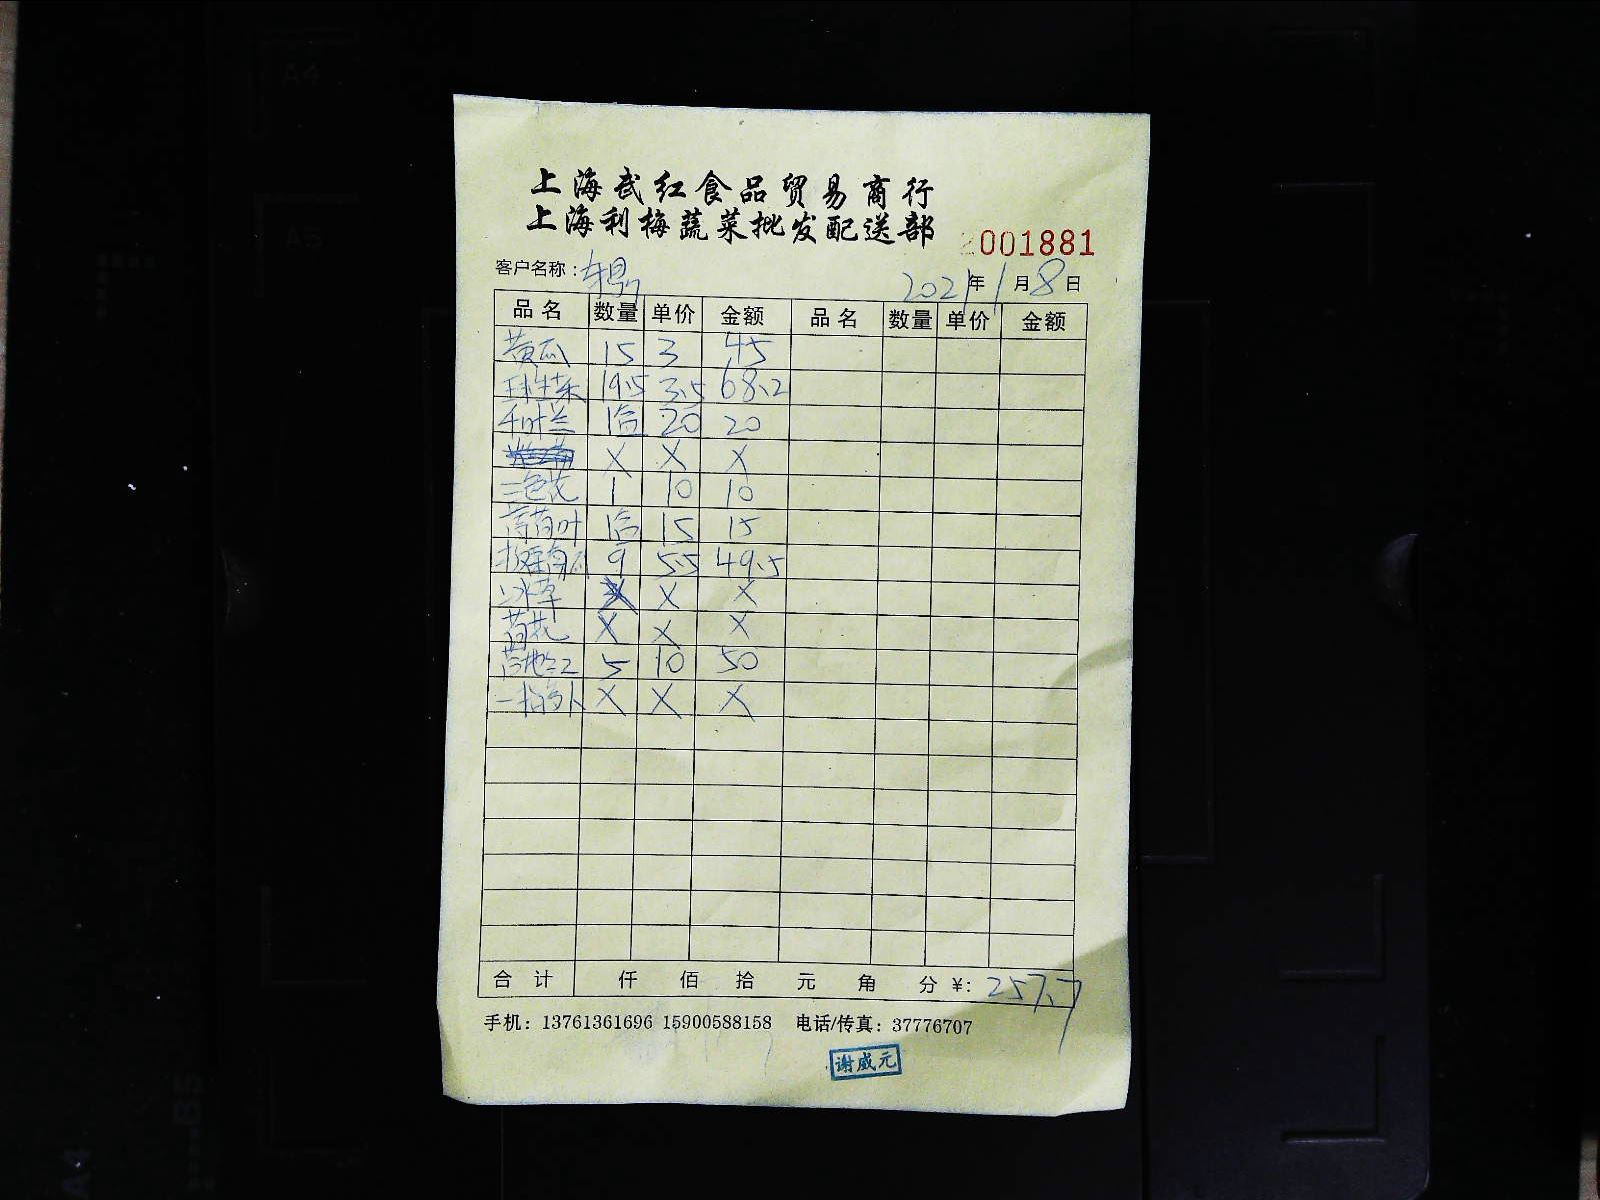 上海武红食品贸易商行
上海利梅蔬菜批发配送部
2001881
客户名称: 2021年1月8日
品名 数量 单价 金额 品名 数量 单价 金额
黄瓜 15 3 45
球生菜 19.5 3.5 68.2
千叶兰 1盒 20 20
X X X
三色花 1 10 10
薄荷叶 1盒 15 15
板栗南瓜 9 5.5 49.5
冰草 X X X
X X X
5 10 50
X X X
合计 仟 佰 拾 元 角 分 ¥: 257.7
手机: 13761361696 15900588158 电话/传真: 37776707
谢威元
A4
A5
B5
A4